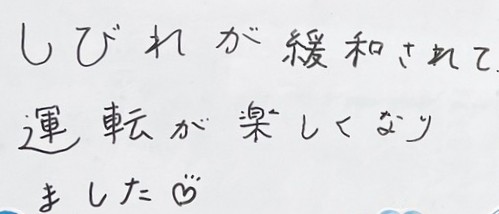 しびれが緩和されて、
運転が楽しくなり
ました♡